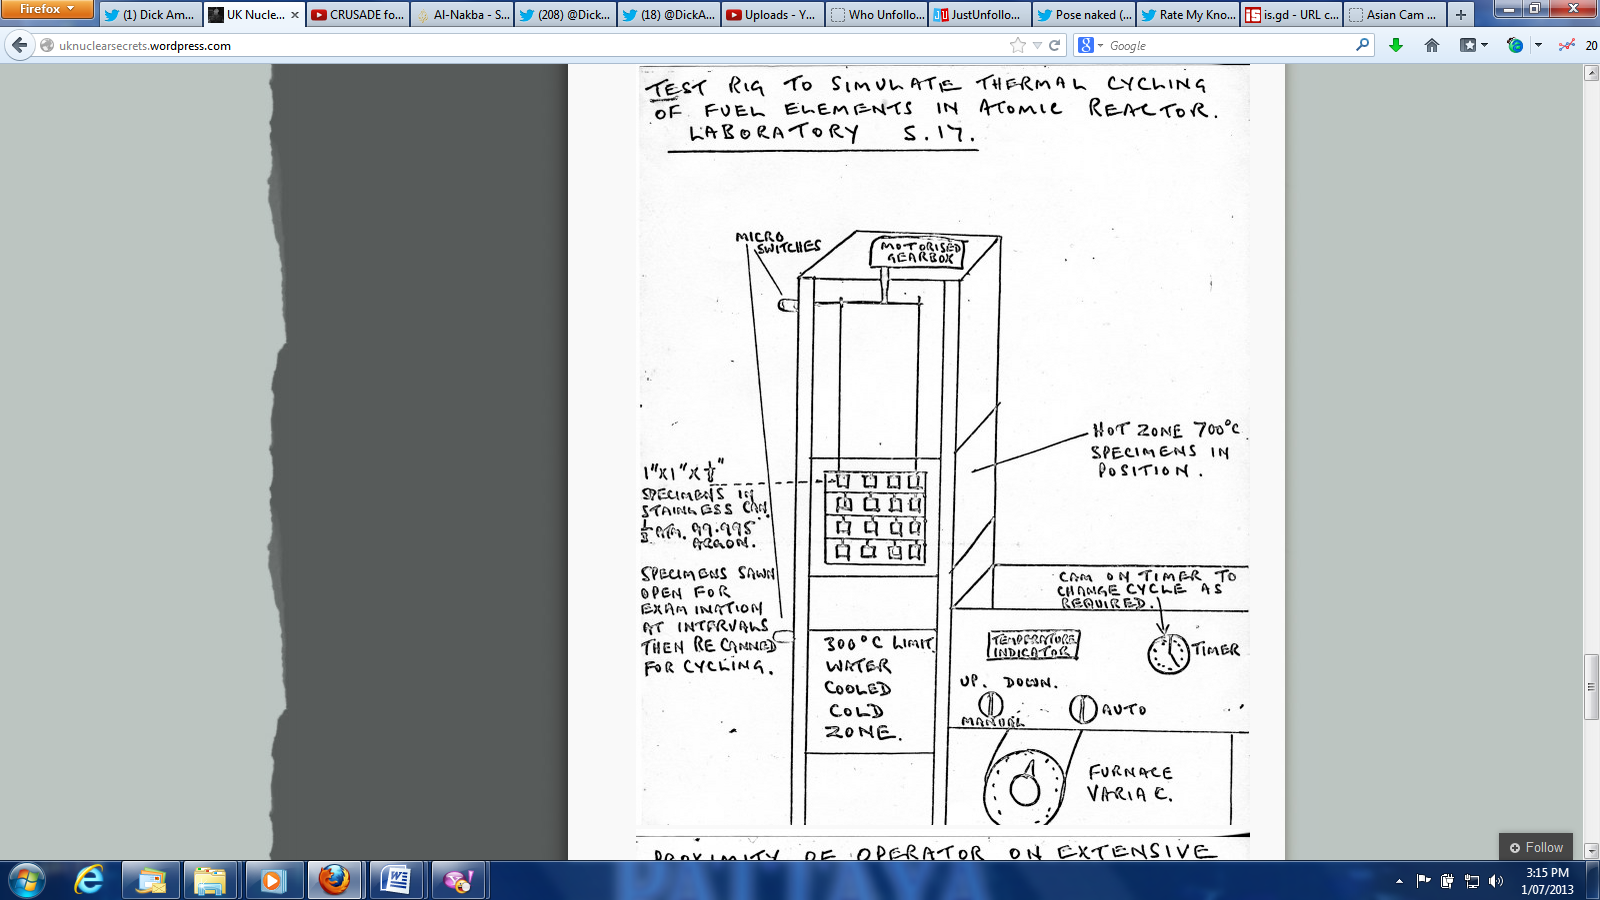 Firefox
(1) Dick Am...
UK Nucle...
CRUSADE fo...
Al-Nakba - S...
(208) @Dick...
(18) @DickA...
Uploads - Y...
Who Unfollo...
JustUnfollo...
Pose naked (...
Rate My Kno...
is.gd - URL c...
Asian Cam ...
uknuclearsecrets.wordpress.com
Google
20
TEST RIG TO SIMULATE THERMAL CYCLING
OF FUEL ELEMENTS IN ATOMIC REACTOR.
LABORATORY S.17.
MICRO
SWITCHES
MOTORISED
GEARBOX
HOT ZONE 700°C
SPECIMENS IN
POSITION.
1"X1"X⅛"
SPECIMENS IN
STAINLESS CAN.
⅓ ATM. 99.995
ARGON.
SPECIMENS SAWN
OPEN FOR
EXAMINATION
AT INTERVALS
THEN RECANNED
FOR CYCLING.
300°C LIMIT.
WATER
COOLED
COLD
ZONE.
CAM ON TIMER TO
CHANGE CYCLE AS
REQUIRED.
TEMPERATURE
INDICATOR
TIMER
UP. DOWN.
MANUAL
AUTO
FURNACE
VARIAC.
PROXIMITY OF OPERATOR ON EXTENSIVE
Follow
PATTAYA
3:15 PM
1/07/2013